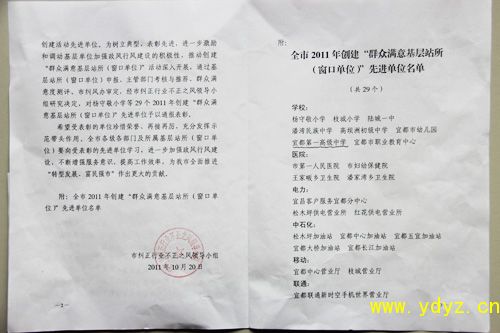 创建活动先进单位。为树立典型、表彰先进，进一步激励
和调动基层单位加强政风行风建设的积极性，推动我市创建
“群众满意基层站所（窗口单位）”活动深入开展，通过基层
站所（窗口单位）申报、主管部门考核与推荐、群众满意
度测评、市纠风办审定，经市纠正行业不正之风领导小
组研究决定，对杨守敬小学等29个2011年创建“群众满
意基层站所（窗口单位）”先进单位予以通报表彰。
希望受表彰的单位珍惜荣誉、再接再厉，充分发挥示
范带头作用。全市各级各部门及所属基层站所（窗口单
位）要向受表彰的先进单位学习，进一步加强政风行风建
设，不断增强服务意识，提高工作效率，为我市全面推进
“转型发展、富民强市”作出更大的贡献。
附：全市2011年创建“群众满意基层站所（窗口单
位）”先进单位名单
市纠正行业不正之风领导小组
2011年10月20日
-2-
附：
全市2011年创建“群众满意基层站所
（窗口单位）”先进单位名单
（共29个）
学校：
杨守敬小学 枝城小学 陆城一中
潘湾民族中学 高坝洲初级中学 宜都市幼儿园
宜都第一高级中学 宜都市职业教育中心
医院：
市第一人民医院 市妇幼保健院
王家畈乡卫生院 潘家湾乡卫生院
电力：
宜昌客户服务宜都分中心
松木坪供电营业所 红花供电营业所
中石化：
松木坪加油站 宜都中心加油站 宜都五宜加油站
宜都大桥加油站 宜都长江加油站
移动：
宜都中心营业厅 枝城营业厅
联通：
宜都联通新时空手机世界营业厅
www.ydyz.cn